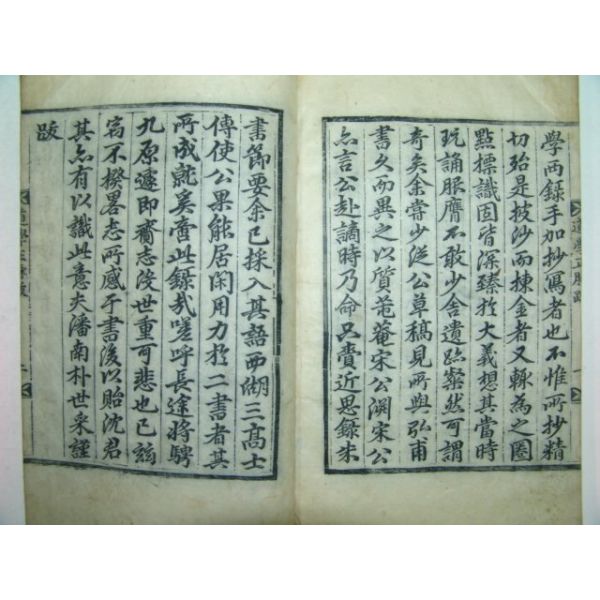 學兩錄手加抄寫者也不惟所抄精
切殆是披沙而揀金者又輒為之圈
點標識固皆深臻於大義想其當時
玩誦服膺不敢少舍遺跡案然可謂
奇矣余嘗少從公草稿見所與弘甫
書久而異之以質菴宋公淵宋公
亦言公赴謫時乃命只賷近思錄朱
書節要余已採入其語西湖三高士
傳使公果能居閑用力於二書者其
所成就奚啻此錄哉嗟呼長途將騁
九原遽即賷志沒世重可悲也已玆
富不揆畧志所感于書後以貽沈君
其亦有以識此意夫潘南朴世采謹
跋